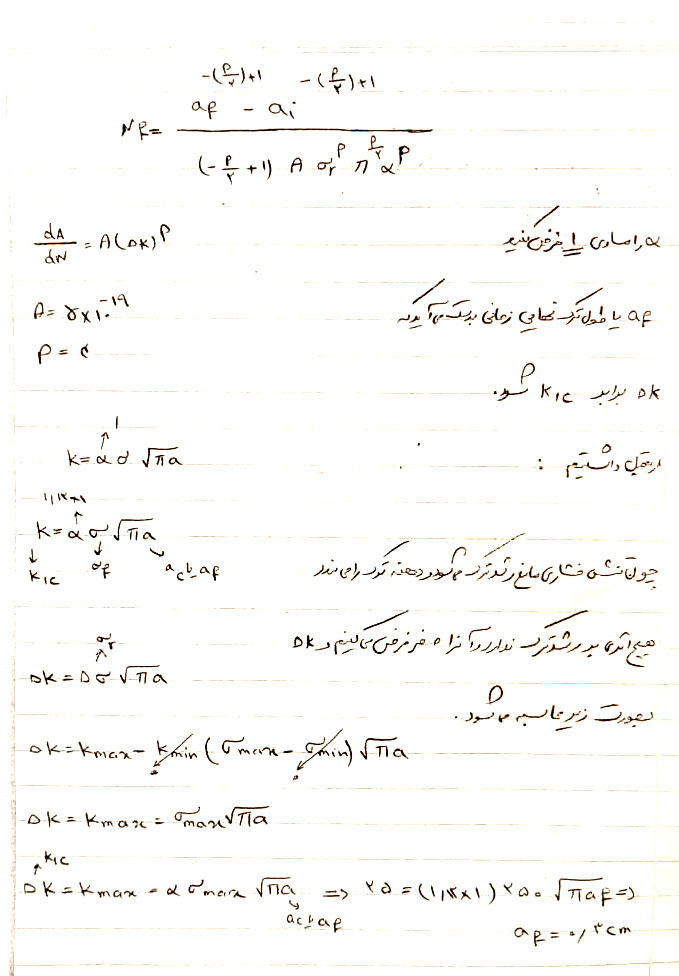 -(P/۲)+۱ -(P/۲)+۱
af - ai
Nf =
(-P/۲ +۱) A σr^P π^P/۲ α^P
dA/dN = A(ΔK)^P
α را مساوی ۱ فرض کنید
A = ۵×۱۰^-۱۹
af یا طول ترک نهایی زمانی بدست می آید که
P =
ΔK برابر KIC شود.
۱
K = α σ √πa
از قبل داشتیم :
۱,۱۲×۱
K = α σ √πa
KIC σf ac یا af
چون تنش فشاری مانع رشد ترک می شود و دهنه ترک را می بندد
هیچ اثری بر رشد ترک ندارد و آنرا صفر فرض می کنیم و ΔK
σr
ΔK = Δσ √πa
بصورت زیر محاسبه می شود.
ΔK = Kmax - Kmin (σmax - σmin) √πa
۰ ۰
ΔK = Kmax = σmax √πa
KIC
ΔK = Kmax = α σmax √πa ⇒ ۲۵ = (۱,۱۲×۱) ۲۵۰ √πaf ⇒
ac یا af
af = ۰,۳ cm